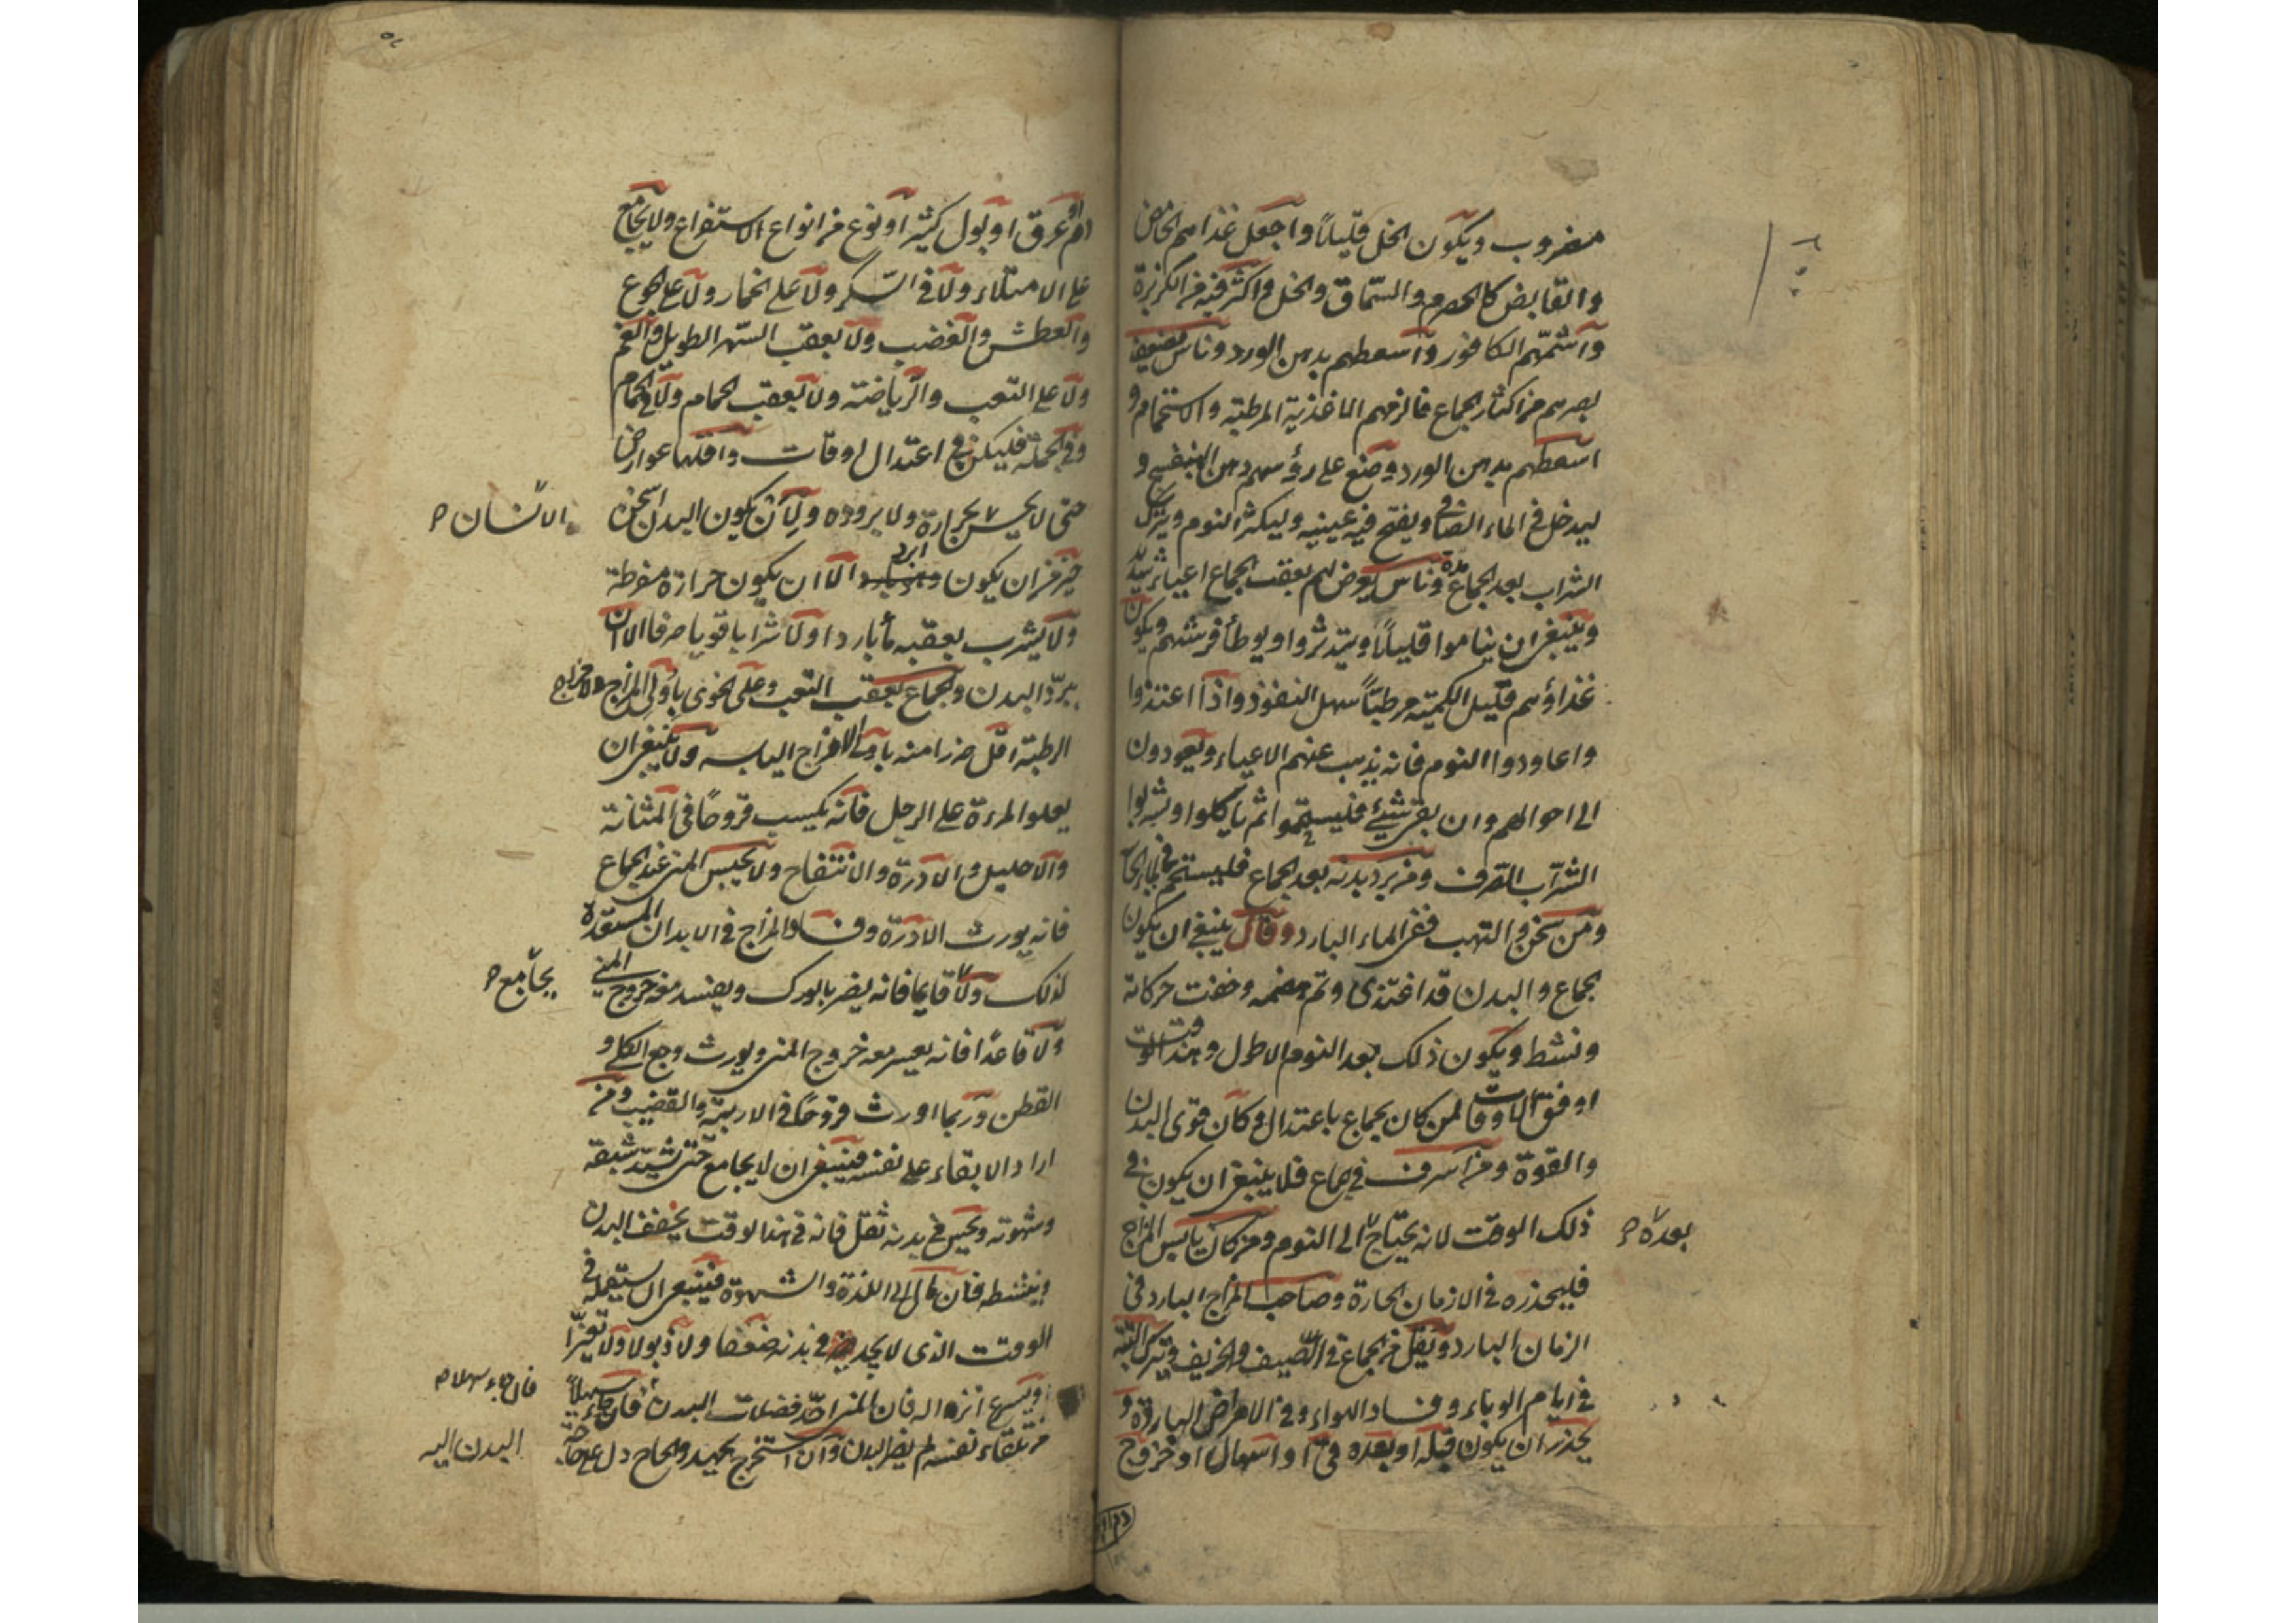 مضروب ويكون الخل قليلاً واجعل غذاهم الحامض
والقابض كالحصرم والسمّاق والخل واكثر فيه من الكزبرة
واشمّهم الكافور واسعطهم بدهن الورد وناس يضعف
بصرهم من اكثار الجماع فالزمهم الاغذية المرطبة والاستحمام و
اسعطهم بدهن الورد وضع على رؤسهم دهن البنفسج و
ليدخل في الماء الصافي ويفتح فيه عينيه وليكثر النوم ويترك
الشراب بعد الجماع مدة وناس يعرض لهم بعقب الجماع اعياء شديد
وينبغي ان يناموا قليلاً ويتدثروا ويوطأ فرشهم ويكون
غذاؤهم قليل الكمية مرطباً سهل النفوذ واذا اغتذوا
واعاودوا النوم فانه يذهب عنهم الاعياء ويعودون
الى احوالهم وان بقي شيئ فليستحموا ثم ياكلوا ويشربوا
الشراب الصرف ومن برد بدنه بعد الجماع فليستحم في الماء الحار
ومن سخن والتهب ففي الماء البارد وقال ينبغي ان يكون
الجماع والبدن قد اغتذى وتم هضمه وخفت حركاته
ونشط ويكون ذلك بعد النوم الاطول وهذا الوقت
اوفق الاوقات لمن كان يجامع باعتدال وكان قوى البدن
والقوة ومن اسرف في جماع فلا ينبغي ان يكون في
ذلك الوقت لانه يحتاج الى النوم ومن كان يابس المزاج
بعده ص
فليحذره في الازمان الحارة وصاحب المزاج البارد في
الزمان البارد ويقل من الجماع في الصيف والخريف ويترك البتة
في ايام الوباء وفساد الهواء وفي الامراض الباردة و
يحذر ان يكون قبله او بعده قئ او اسهال او خروج
دم او
دم او عرق او بول كثير او نوع من انواع الاستفراغ ولا يجامع
على الامتلاء ولا في السكر ولا على الخمار ولا على الجوع
والعطش والغضب ولا بعقب السهر الطويل والغم
ولا على التعب والرياضة ولا بعقب الحمام ولا في الحمام
وفي الجملة فليكن في اعتدال اوقات واقلها عوارض
حتى لا يحس بحرارة ولا برودة ولأن يكون البدن اسخن
الانسان ص
خير من ان يكون ابرد الا ان يكون حرارة مفرطة
ولا يشرب بعقبه ماء باردا ولا شرابا قويا صرفا الا ان
يبرد البدن والجماع بعقب التعب وعلى الخوى بأولى المزاج
الرطبة اقل ضررا منه باولى الامزاج اليابسه ولا ينبغي ان
يعلوا المرءة على الرجل فانه يكسب قروحًا في المثانة
والاحليل والادرة والانتفاخ ولا يحبس المني عند الجماع
فانه يورث الادرة وفساد المزاج في الابدان المستعدة
لذلك ولا قايما فانه يضر بالورك ويفسد معه خروج المني
يجامع ص
ولا قاعدًا فانه يعسر معه خروج المني ويورث وجع الكلى و
القطن وربما اورث قروحًا في الاربية والقضيب ومن
اراد الابقاء على نفسه فينبغي ان لا يجامع حتى يشتد شبقه
وشهوته ويحس في بدنه ثقل فانه في هذا الوقت يخفف البدن
وينشطه فان مال الى اللذة والشهوة فينبغي ان يستعمله في
الوقت الذى لا يجد في بدنه ضعفا ولا ذبولا ولا تغيرا
ويسرع انزاله فان المني احد فضلات البدن فان جاء سهلاً
فان جاء سهلا ص
من تلقاء نفسه لم يضر البدن وان استخرج بجهد والحاح دل على حاجة
البدن اليه